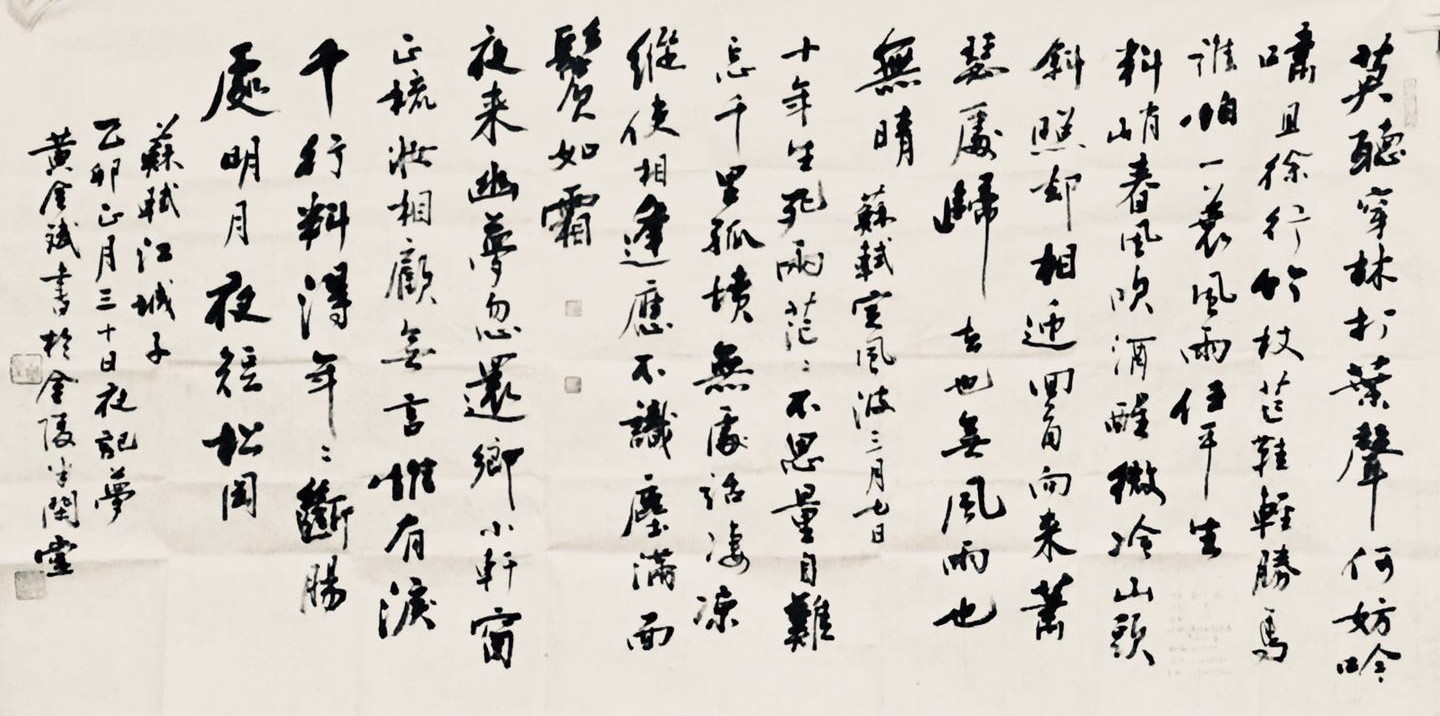 莫聽穿林打葉聲何妨吟
嘯且徐行竹杖芒鞋輕勝馬
誰怕一蓑風雨任平生
料峭春風吹酒醒微冷山頭
斜照却相迎回首向来蕭
瑟處歸去也無風雨也
無晴
蘇軾定風波三月七日
十年生死兩茫〻不思量自難
忘千里孤墳無處話凄凉
縱使相逢應不識塵滿面
鬢如霜
夜来幽夢忽還鄉小軒窗
正梳妝相顧無言惟有淚
千行料得年〻斷腸
處明月夜短松岡
蘇軾江城子
乙卯正月二十日夜記夢
黃金斌書於金陵半閒堂